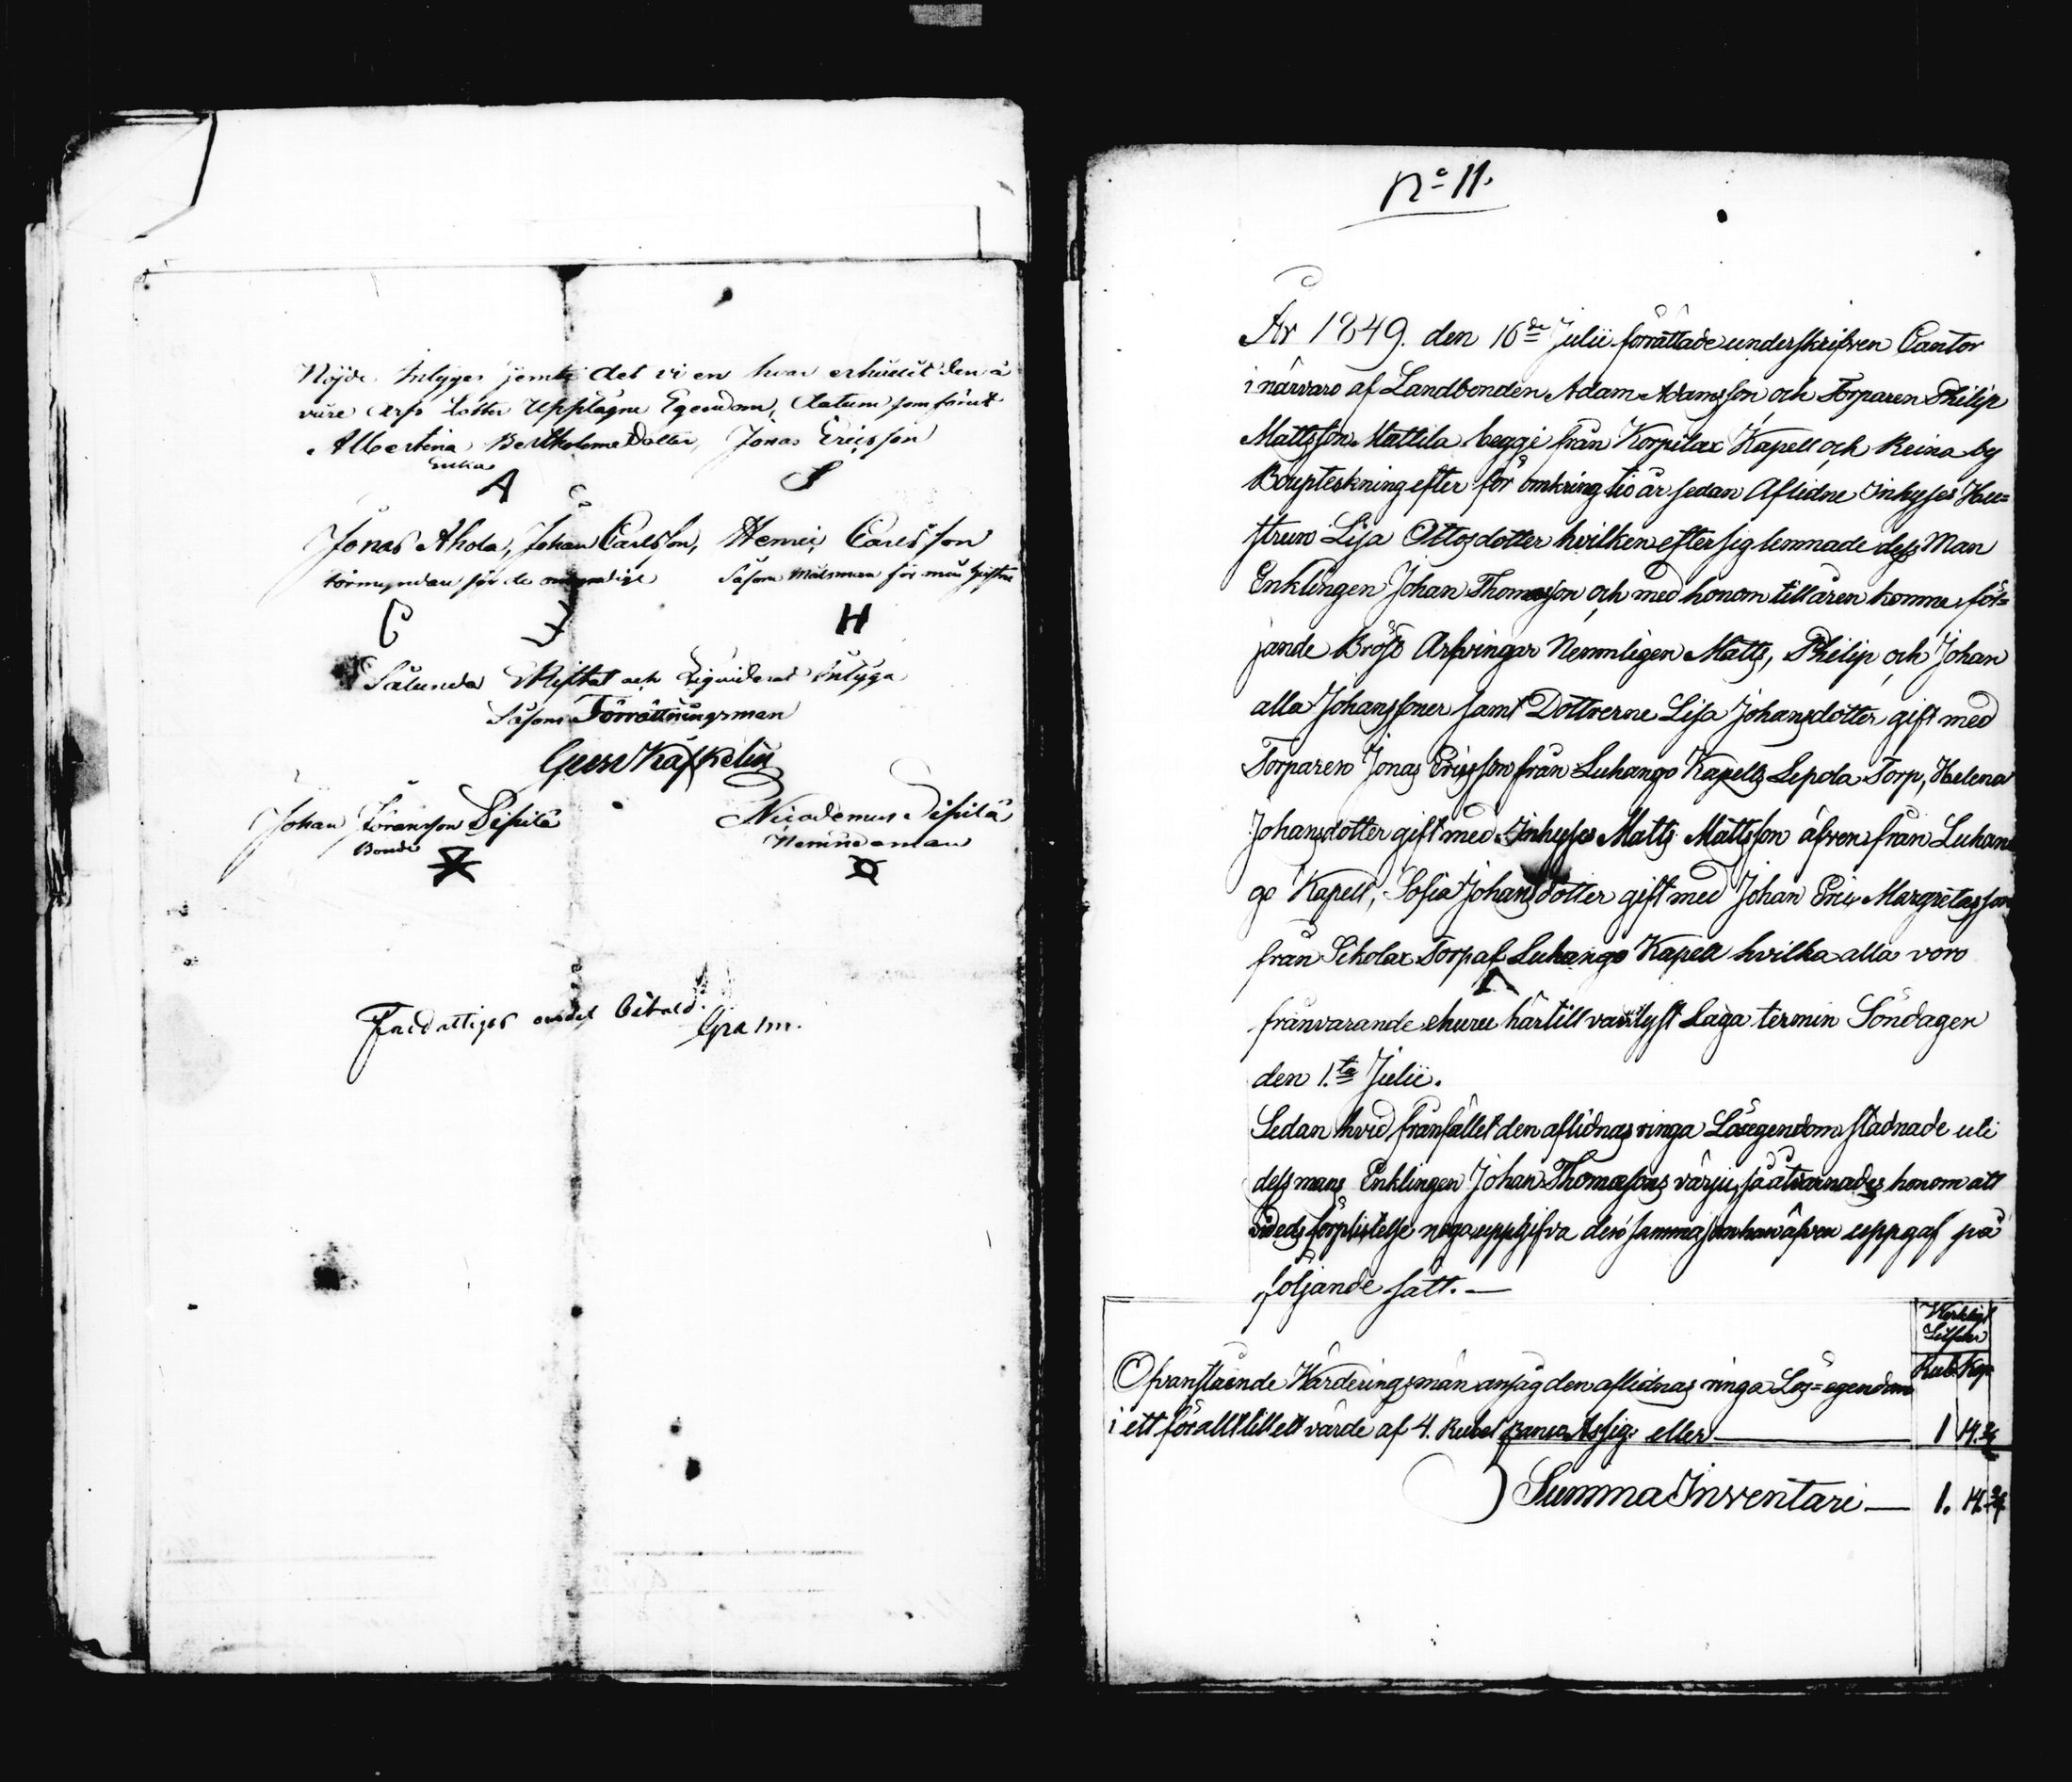 Nöjde. Intyges jemte det vi en hvar erhållit den å
våre Arfs Lotter Upptagne Egendom, Datum som förut
Albertina Bertholomei Dotter, Jonas Ericsson
Enka
A S
Jonas Ahola, Johan Carlsson, Henric Carlsson
Förmyndare för de omyndige Såsom Målsman för min hustru
C J H
Sålunda Skiftat och Liqviderat Intyga
Såsom Förrättningsman
Gust Kaskelin
Johan Göransson Sipilä Nicodemus Sipilä
Bonde Nämndeman
Fattigas andel betald.
Gram.
No 11.
År 1849. den 16de Julii förrättade underskrifven Cantor
i närvaro af Landbonden Adam Adamsson och Torparen Philip
Mattsson Mattila beggi från Korpilax Kapell och Reina by
Boupteckning efter för omkring tio år sedan Aflidne Inhyses Hu=
strun Lisa Ottosdotter hvilken efter sig lemnade dess Man
Enklingen Johan Thomasson och med honom till åren komne föl=
jande Bröst Arfvingar Nemnligen Matts, Philip och Johan
alla Johanssoner samt Dottrerne Lisa Johansdotter gift med
Torparen Jonas Ericsson från Luhango Kapells Lepola Torp, Helena
Johansdotter gift med Inhyses Matts Mattsson äfven från Luhan
go Kapell, Sofia Johansdotter gift med Johan Eric Margretasson
från Sikolax Torp af Luhango Kapell hvilka alla voro
frånvarande ehuru härtill varit lyst Laga termin Söndagen
den 1.ta Julii.
Sedan hvid frånfället den aflidnas ringa Lösegendom stadnade uti
dess mans Enklingen Johan Thomassons värju, så åtvarnades honom att
vid eds förpliktelse noga uppgifva den samma som han äfven uppgaf på
följande sätt. —
Verkligt
Silfver
Rub. Kop
Ofvanstående Värderingsmän ansåg den aflidnas ringa Lös=egendom
i ett för allt till ett värde af 4. Rubel Banco Assig: eller 1 14.2/7
Summa Inventarii — 1. 14.2/7